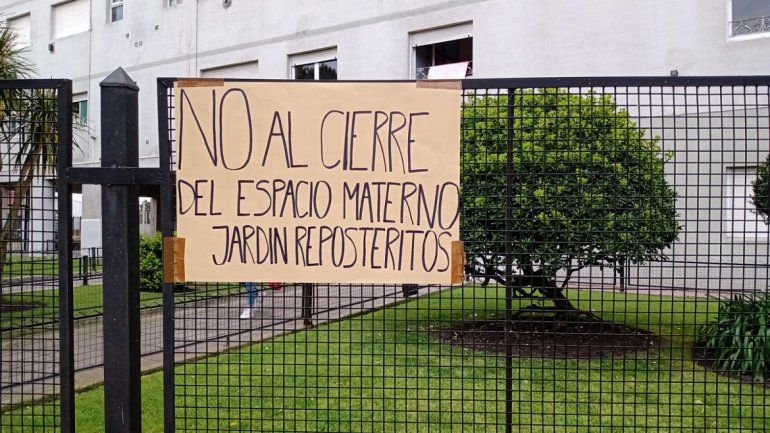 NO AL CIERRE
DEL ESPACIO MATERNO
JARDIN REPOSTERITOS